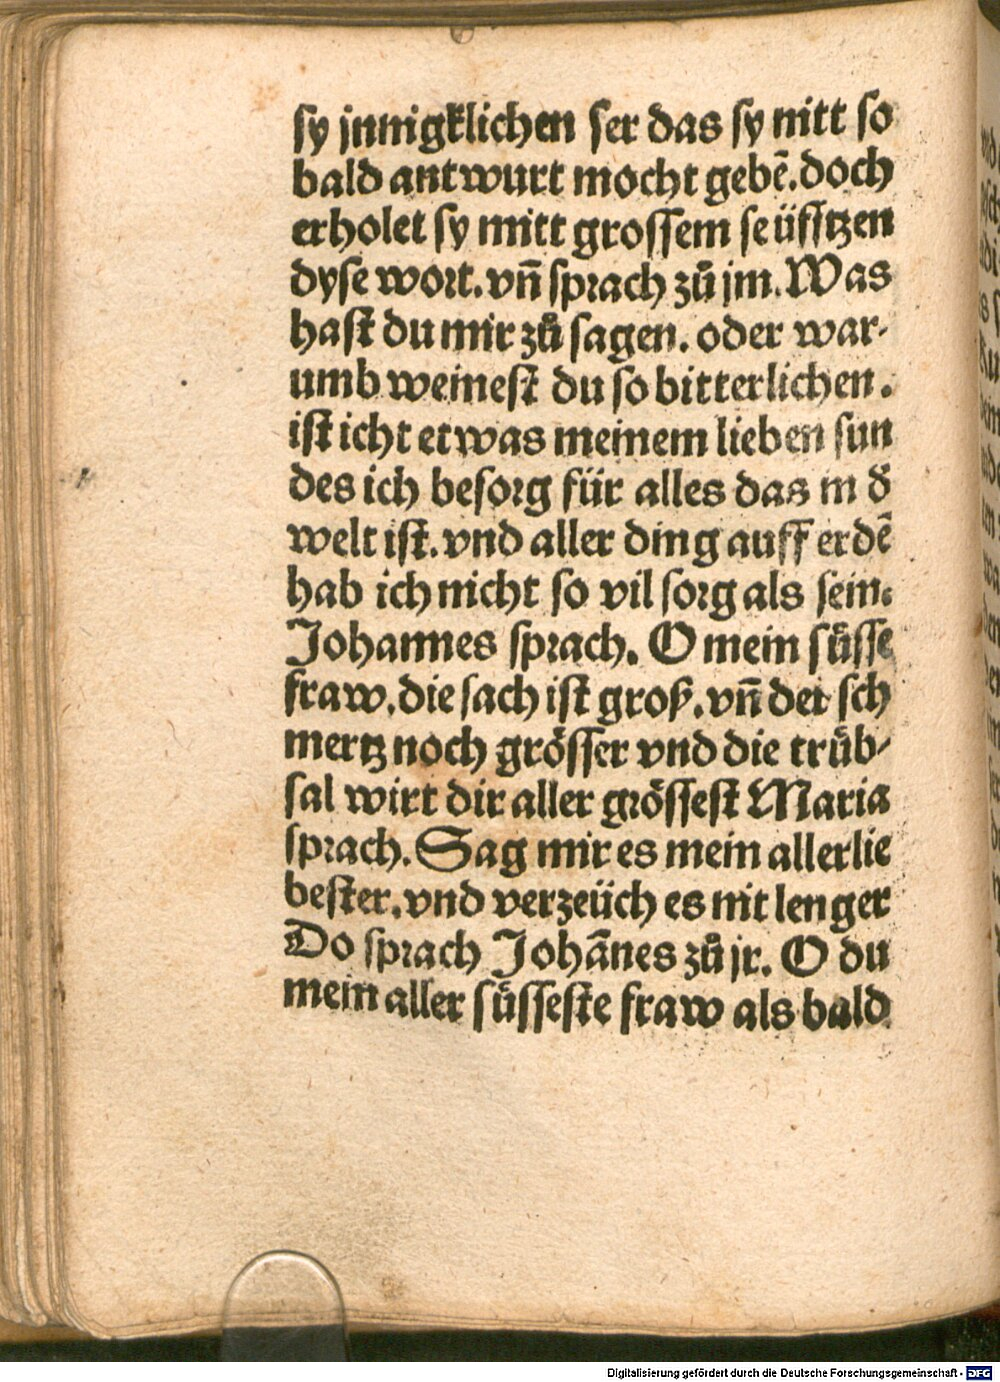 sy jnnigklichen ser das sy nitt so
bald antwurt mocht gebē. doch
erholet sy mitt grossem seüfftzen
dyse wort. vñ sprach zů jm. Was
hast du mir zů sagen. oder war-
umb weinest du so bitterlichen.
ist icht etwas meinem lieben sun
des ich besorg für alles das in d̄
welt ist. vnd aller ding auff erdē
hab ich nicht so vil sorg als sein.
Johannes sprach. O mein süsse
fraw. die sach ist groß. vñ der sch
mertz noch grösser vnd die trüb-
sal wirt dir aller grössest Maria
sprach. Sag mir es mein allerlie
bester. vnd verzeüch es nit lenger
Do sprach Johānes zů jr. O du
mein aller süsseste fraw als bald
Digitalisierung gefördert durch die Deutsche Forschungsgemeinschaft - DFG